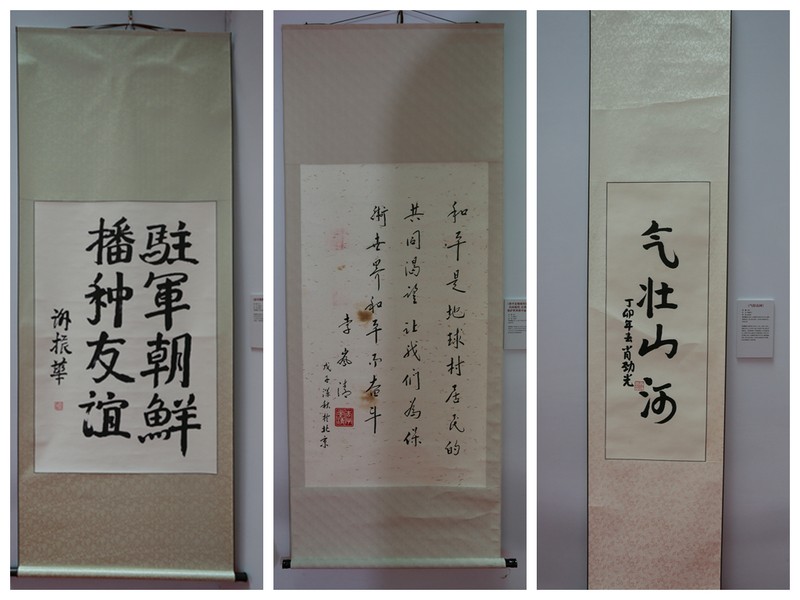 駐軍朝鮮
播种友誼
谢振華
和平是地球村居民的
共同渴望 让我们为保
衛世界和平而奋斗
李岚清
戊子深秋於北京
气壮山河
丁卯年冬肖劲光